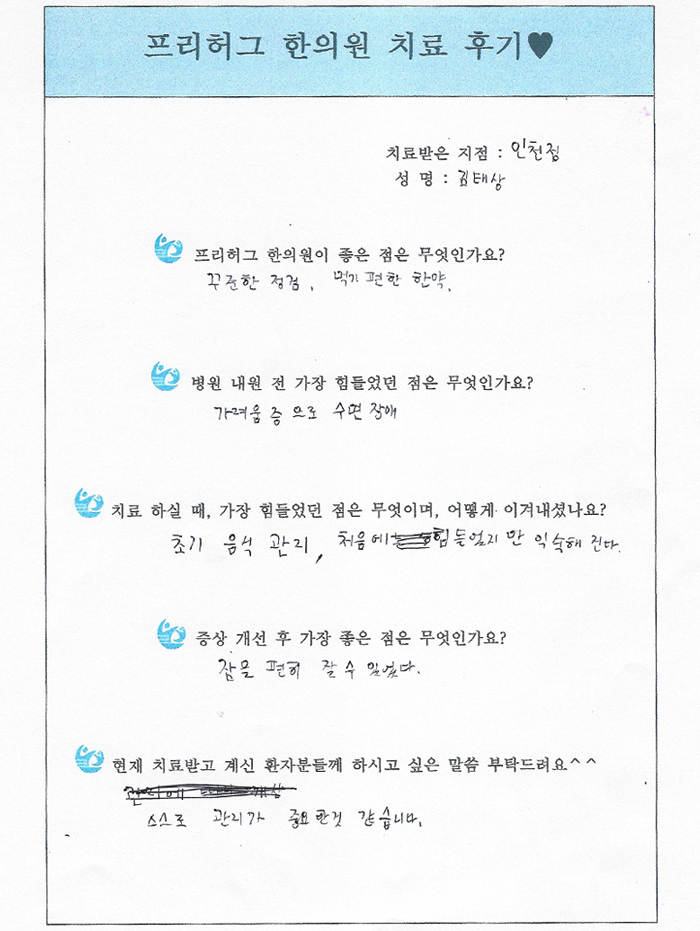 프리허그 한의원 치료 후기♥
치료받은 지점 : 인천점
성 명 : 김태상
프리허그 한의원이 좋은 점은 무엇인가요?
꾸준한 점검, 먹기 편한 한약.
병원 내원 전 가장 힘들었던 점은 무엇인가요?
가려움증으로 수면장애
치료 하실 때, 가장 힘들었던 점은 무엇이며, 어떻게 이겨내셨나요?
초기 음식 관리, 처음에는 힘들었지만 익숙해진다.
증상 개선 후 가장 좋은 점은 무엇인가요?
잠을 편히 잘 수 있었다.
현재 치료받고 계신 환자분들께 하시고 싶은 말씀 부탁드려요^^
스스로 관리가 중요한것 같습니다.